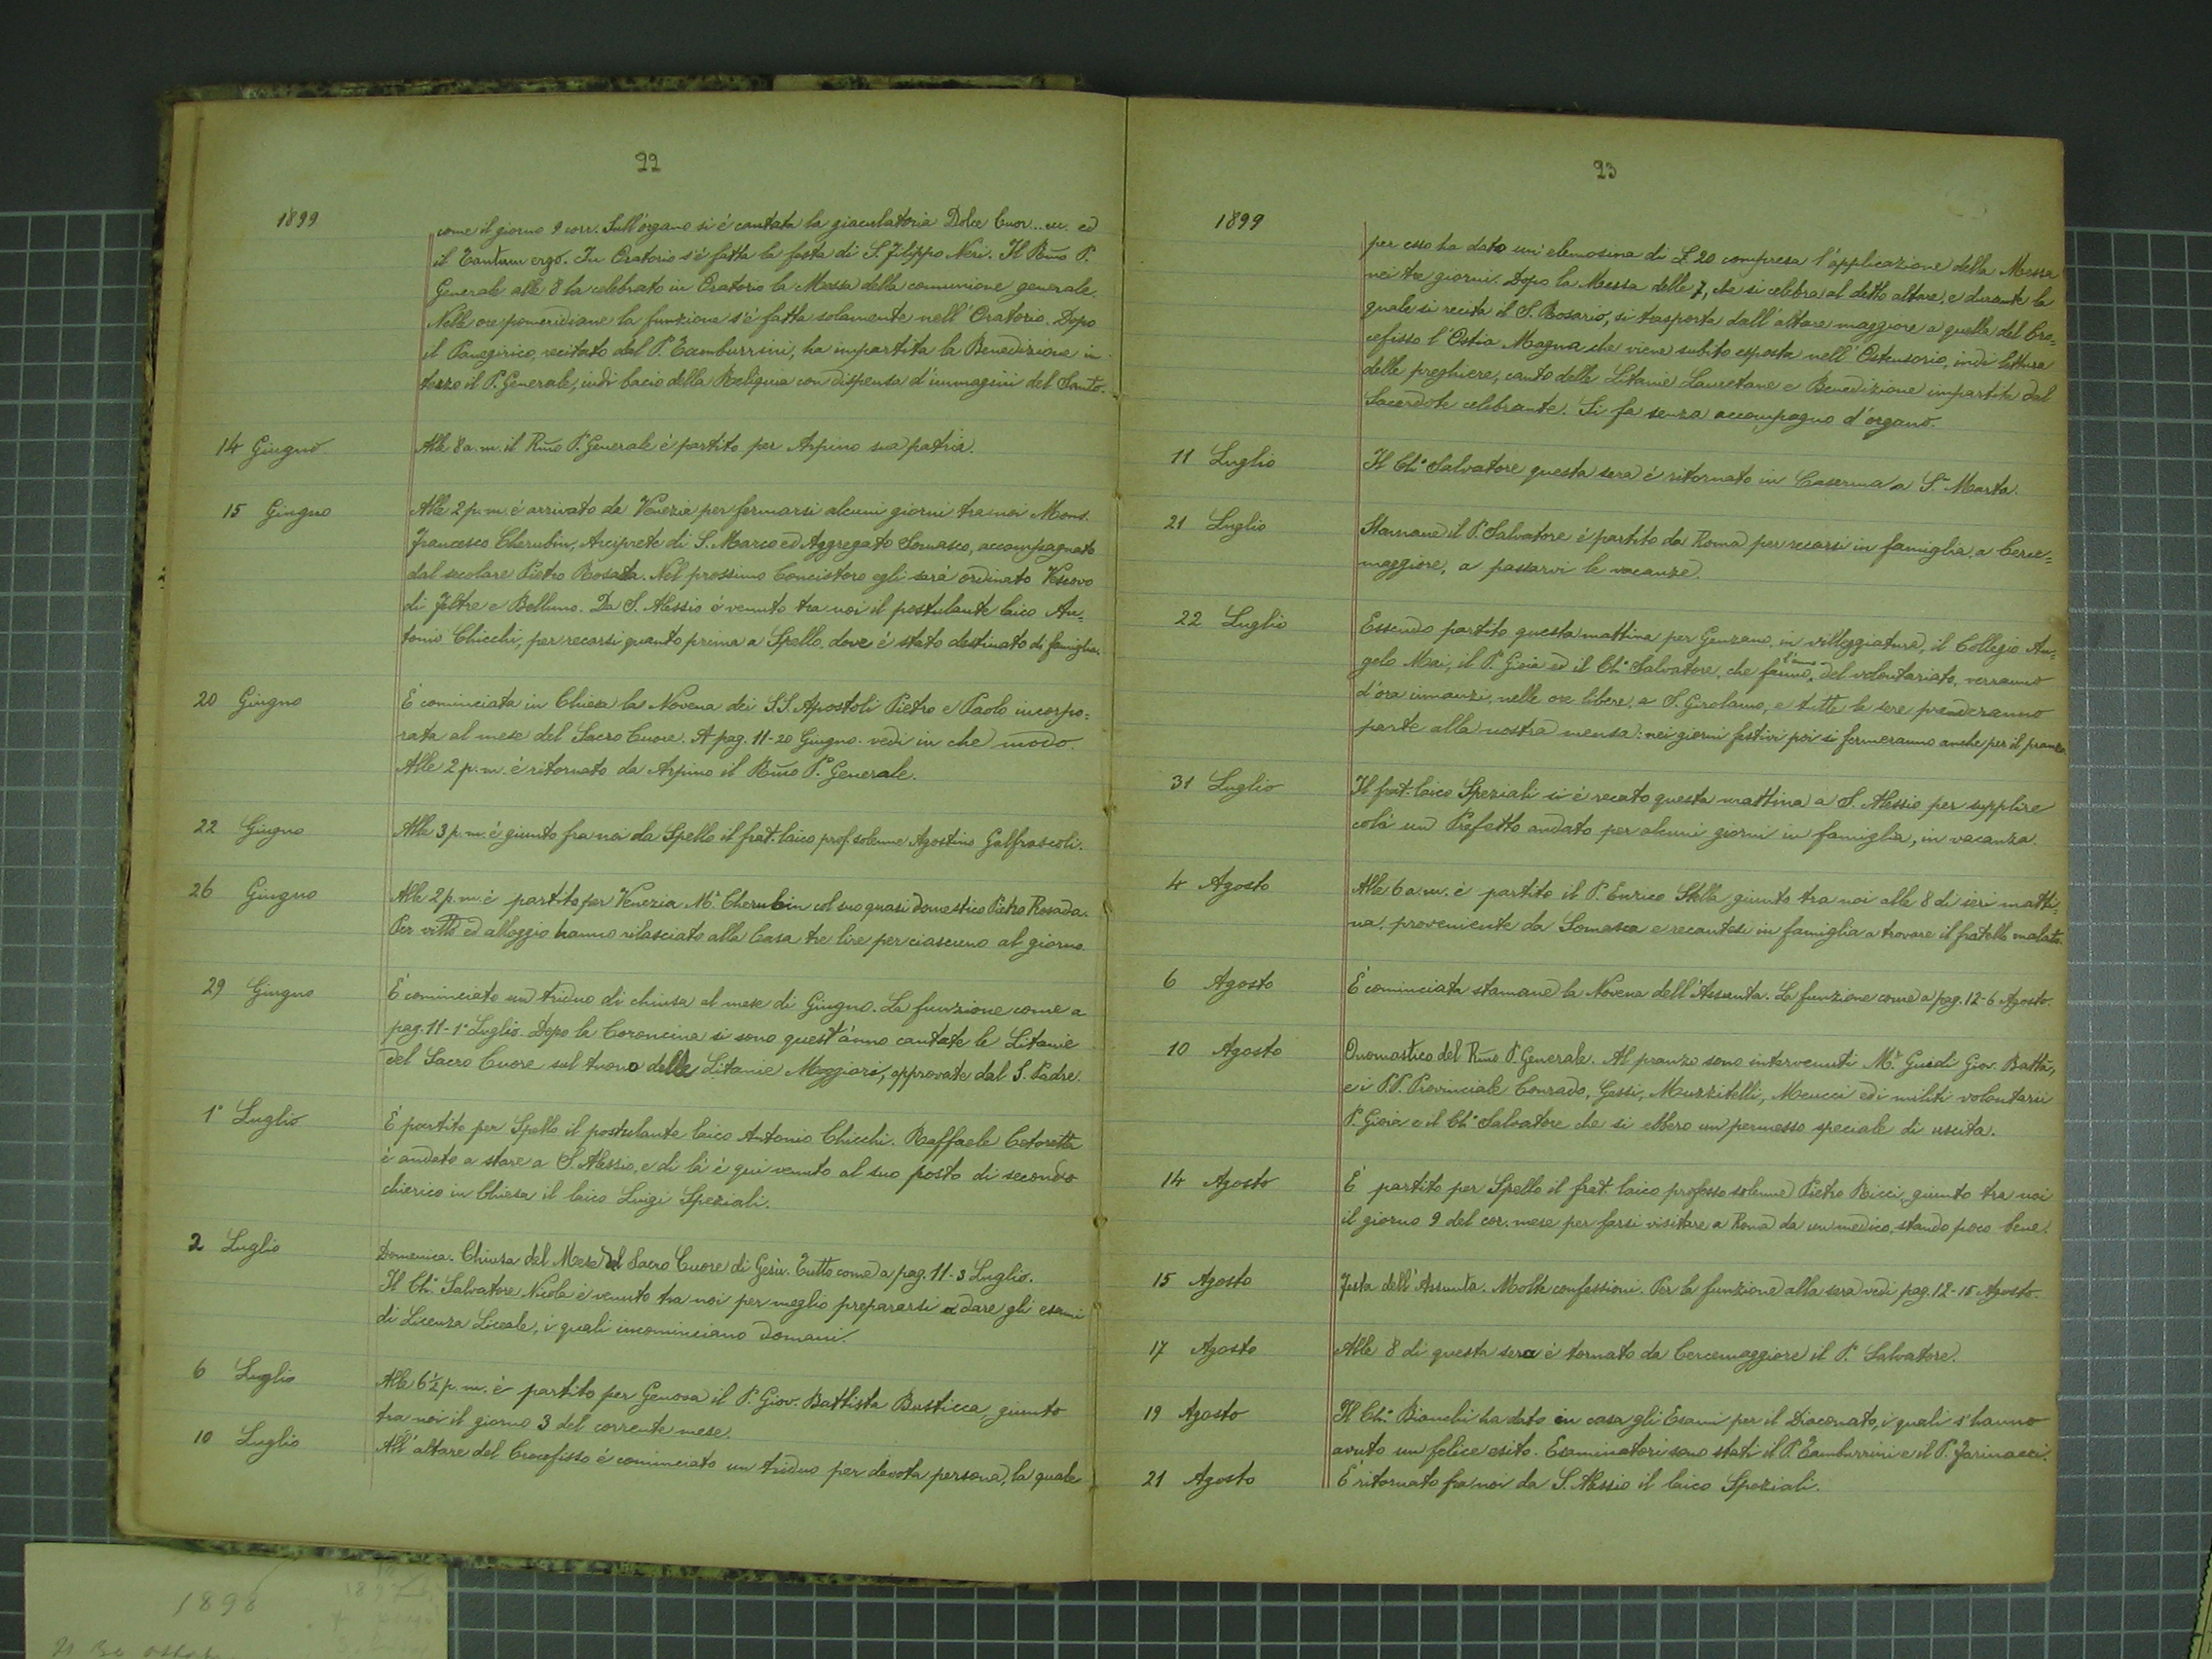 22
1899
come il giorno 9 corr. Sull'organo si è cantata la giaculatoria Dolce Cuor... ecc. ed
il Tantum ergo. In Oratorio s'è fatta la festa di S. Filippo Neri. Il Rmo P.
Generale alle 8 ha celebrato in Oratorio la Messa della comunione generale.
Nelle ore pomeridiane la funzione s'è fatta solamente nell'Oratorio. Dopo
il Panegirico, recitato dal P. Tamburrini, ha impartita la Benedizione in
terzo il P. Generale, indi bacio della Reliquia con dispensa d'immagini del Santo.
14 Giugno Alle 8 a. m. il Rmo P. Generale è partito per Arpino sua patria.
15 Giugno Alle 2 p. m. è arrivato da Venezia per fermarsi alcuni giorni tra noi Mons.
Francesco Cherubin, Arciprete di S. Marco ed Aggregato Somasco, accompagnato
dal secolare Pietro Rosada. Nel prossimo Concistoro egli sarà ordinato Vescovo
di Feltre e Belluno. Da S. Alessio è venuto tra noi il postulante laico An=
tonio Chicchi, per recarsi quanto prima a Spello, dove è stato destinato di famiglia.
20 Giugno È cominciata in Chiesa la Novena dei SS. Apostoli Pietro e Paolo incorpo=
rata al mese del Sacro Cuore. A pag. 11-20 Giugno. vedi in che modo.
Alle 2 p. m. è ritornato da Arpino il Rmo P. Generale.
22 Giugno Alle 3 p. m. è giunto fra noi da Spello il frat. laico prof. solenne Agostino Galfrascoli.
26 Giugno Alle 2 p. m. è partito per Venezia Mr. Cherubin col suo quasi domestico Pietro Rosada.
Per vitto ed alloggio hanno rilasciato alla Casa tre lire per ciascuno al giorno.
29 Giugno È cominciato un triduo di chiusa al mese di Giugno. La funzione come a
pag. 11-1° Luglio. Dopo la Coroncina si sono quest'anno cantate le Litanie
del Sacro Cuore sul tuono delle Litanie Maggiori, approvate dal S. Padre.
1° Luglio È partito per Spello il postulante laico Antonio Chicchi. Raffaele Cetoretta
è andato a stare a S. Alessio, e di là è qui venuto al suo posto di secondo
chierico in Chiesa il laico Luigi Speziali.
2 Luglio Domenica. Chiusa del Mese del Sacro Cuore di Gesù. Tutto come a pag. 11-3 Luglio.
Il Ch.° Salvatore Nicola è venuto tra noi per meglio prepararsi a dare gli esami
di Licenza Liceale, i quali incominciano domani.
6 Luglio Alle 6½ p. m. è partito per Genova il P. Giov. Battista Busticca, giunto
tra noi il giorno 3 del corrente mese.
10 Luglio All'altare del Crocefisso è cominciato un triduo per devota persona, la quale
23
1899
per esso ha dato un'elemosina di £ 20 compresa l'applicazione della Messa
nei tre giorni. Dopo la Messa delle 7, che si celebra al detto altare, e durante la
quale si recita il S. Rosario, si trasporta dall'altare maggiore a quella del Cro=
cefisso l'Ostia Magna che viene subito esposta nell'Ostensorio, indi lettura
delle preghiere, canto delle Litanie Lauretane e Benedizione impartita dal
Sacerdote celebrante. Si fa senza accompagno d'organo.
11 Luglio Il Ch.° Salvatore questa sera è ritornato in Caserma a S. Marta.
21 Luglio Stamane il P. Salvatore è partito da Roma per recarsi in famiglia, a Cerce=
maggiore, a passarvi le vacanze.
22 Luglio Essendo partito questa mattina per Genzano, in villeggiatura, il Collegio An=
gelo Mai, il P. Gioia ed il Ch.° Salvatore, che fanno l'anno del volontariato, verranno
d'ora innanzi, nelle ore libere, a S. Girolamo, e tutte le sere prenderanno
parte alla nostra mensa: nei giorni festivi poi si fermeranno anche per il pranzo.
31 Luglio Il frat. laico Speziali si è recato questa mattina a S. Alessio per supplire
colà un Prefetto andato per alcuni giorni in famiglia, in vacanza.
4 Agosto Alle 6 a. m. è partito il P. Enrico Stella giunto tra noi alle 8 di ieri matti=
na, proveniente da Somasca e recantesi in famiglia a trovare il fratello malato.
6 Agosto È cominciata stamane la Novena dell'Assunta. La funzione come a pag. 12-6 Agosto.
10 Agosto Onomastico del Rmo P. Generale. Al pranzo sono intervenuti Mr. Guidi Giov. Batta,
e i PP. Provinciale Conrado, Gessi, Muzzitelli, Meucci ed i militi volontarii
P. Gioia e il Ch.° Salvatore che si ebbero un permesso speciale di uscita.
14 Agosto È partito per Spello il frat. laico professo solenne Pietro Ricci, giunto tra noi
il giorno 9 del cor. mese per farsi visitare a Roma da un medico, stando poco bene.
15 Agosto Festa dell'Assunta. Molte confessioni. Per la funzione alla sera vedi pag. 12-15 Agosto.
17 Agosto Alle 8 di questa sera è tornato da Cercemaggiore il P. Salvatore.
19 Agosto Il Ch.° Bianchi ha dato in casa gli Esami per il Diaconato, i quali s'hanno
avuto un felice esito. Esaminatori sono stati il P. Tamburrini e il P. Farinacci.
21 Agosto È ritornato fra noi da S. Alessio il laico Speziali.
1898